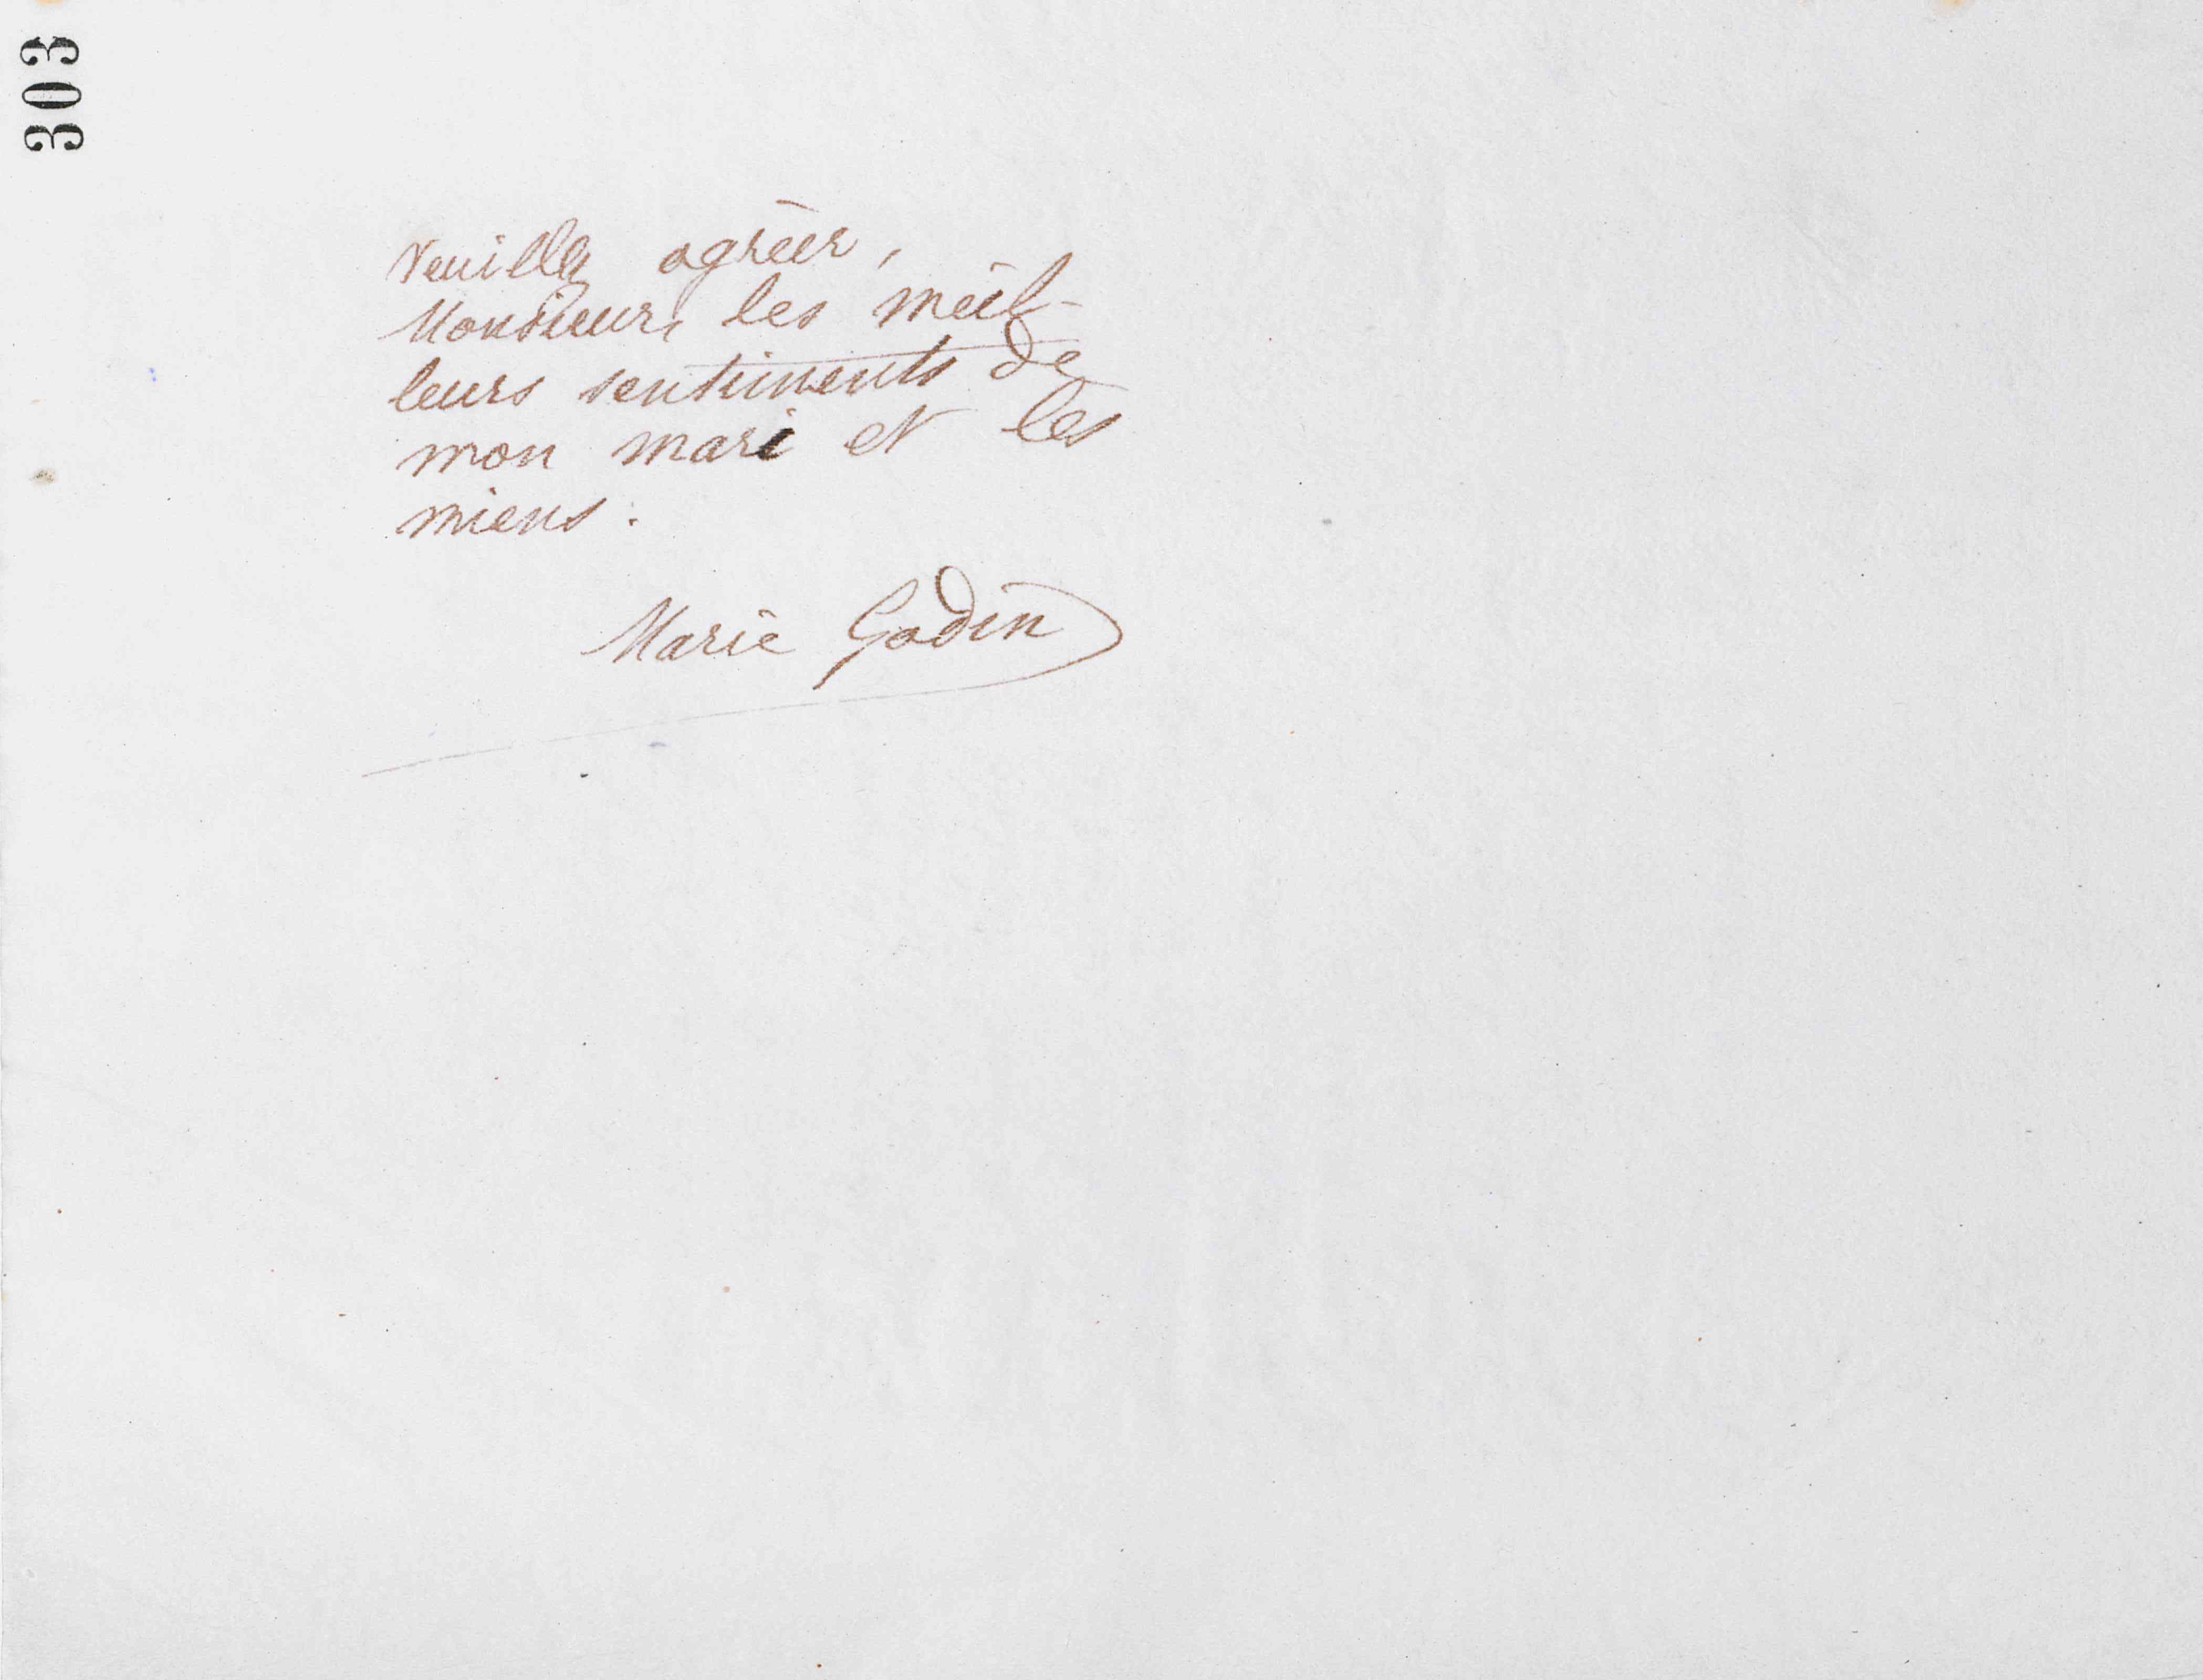 303
Veuillez agréer,
Monsieur, les meil-
leurs sentiments de
mon mari et les
miens.
Marie Godin